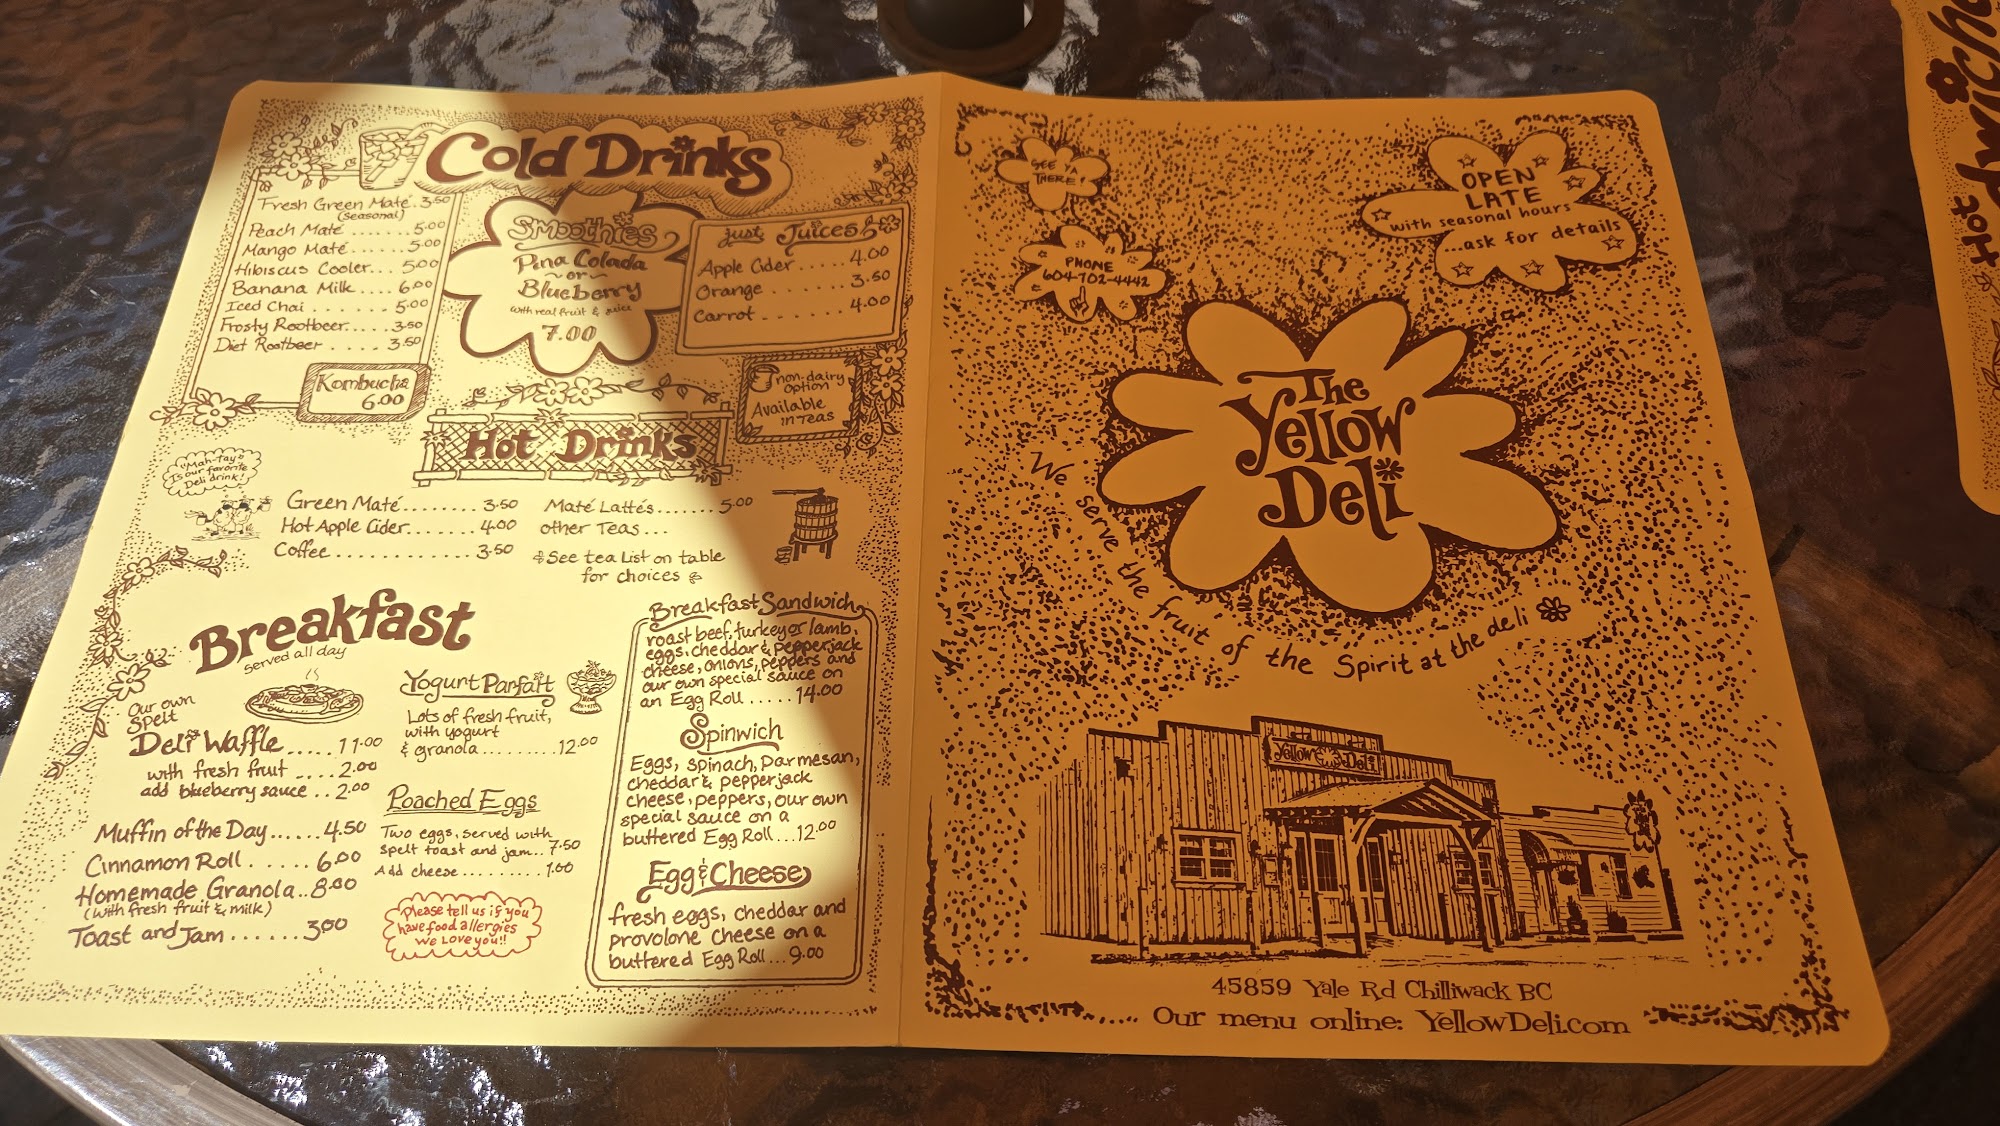 Cold Drinks
Fresh Green Maté . 3.50
(seasonal)
Peach Maté ...... 5.00
Mango Maté ...... 5.00
Hibiscus Cooler... 5.00
Banana Milk .... 6.00
Iced Chai ....... 5.00
Frosty Rootbeer.... 3.50
Diet Rootbeer .... 3.50
Kombucha
6.00
Smoothies
Pina Colada
~or~
Blueberry
with real fruit & juice
7.00
just Juices
Apple Cider ..... 4.00
Orange ........ 3.50
Carrot ....... 4.00
non-dairy
option
Available
in Teas
Hot Drinks
"Mah-tay"
Is our favorite
Deli drink!
Green Maté........ 3.50
Hot Apple Cider....... 4.00
Coffee ............ 3.50
Maté Lattés....... 5.00
other Teas...
See tea List on table
for choices
Breakfast
served all day
Our own
spelt
Deli Waffle ..... 11.00
with fresh fruit .... 2.00
add blueberry sauce .. 2.00
Muffin of the Day...... 4.50
Cinnamon Roll ...... 6.00
Homemade Granola.. 8.00
(with fresh fruit & milk)
Toast and Jam ...... 3.00
Yogurt Parfait
Lots of fresh fruit,
with yogurt
& granola......... 12.00
Poached Eggs
Two eggs, served with
spelt toast and jam.. 7.50
Add cheese......... 1.00
Please tell us if you
have food allergies
We Love you!!
Breakfast Sandwich
roast beef, turkey or lamb,
eggs, cheddar & pepperjack
cheese, onions, peppers and
our own special sauce on
an Egg Roll ..... 14.00
Spinwich
Eggs, spinach, Parmesan,
cheddar & pepperjack
cheese, peppers, our own
special sauce on a
buttered Egg Roll... 12.00
Egg & Cheese
fresh eggs, cheddar and
provolone cheese on a
buttered Egg Roll... 9.00
SEE YA
THERE!
PHONE
604-702-4442
OPEN
LATE
with seasonal hours
...ask for details
The
Yellow
Deli
We serve the fruit of the Spirit at the deli
Yellow Deli
45859 Yale Rd Chilliwack BC
Our menu online: YellowDeli.com
Hot